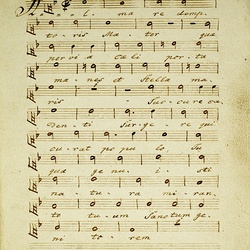 Al ma re demp
to ris Ma ter qua
per vi a Cœli por ta
ma nes et Stella ma
ris Suc cu re ca
den ti Sur ge re qui
cu rat po pu lo tu
quæ ge nu i sti
na tu ra mi ran
to tu um Sanctum ge
ni to rem